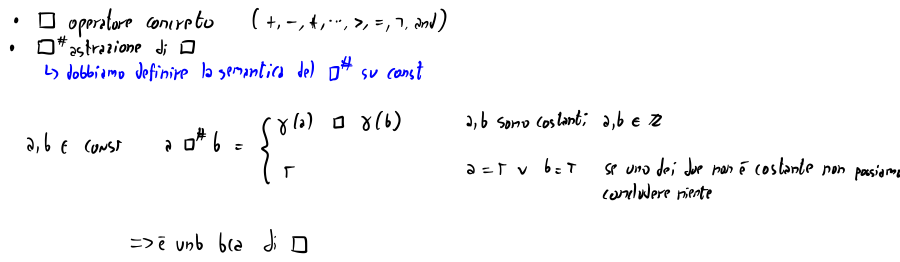 • □ operatore concreto (+, -, *, ..., >, =, ¬, and)
• □# astrazione di □
↳ dobbiamo definire la semantica del □# su const
a, b ∈ const a □# b = { γ(a) □ γ(b) a, b sono costanti a, b ∈ ℤ
⊤ a = ⊤ ∨ b = ⊤ se uno dei due non è costante non possiamo
concludere niente
=> è unb bca di □